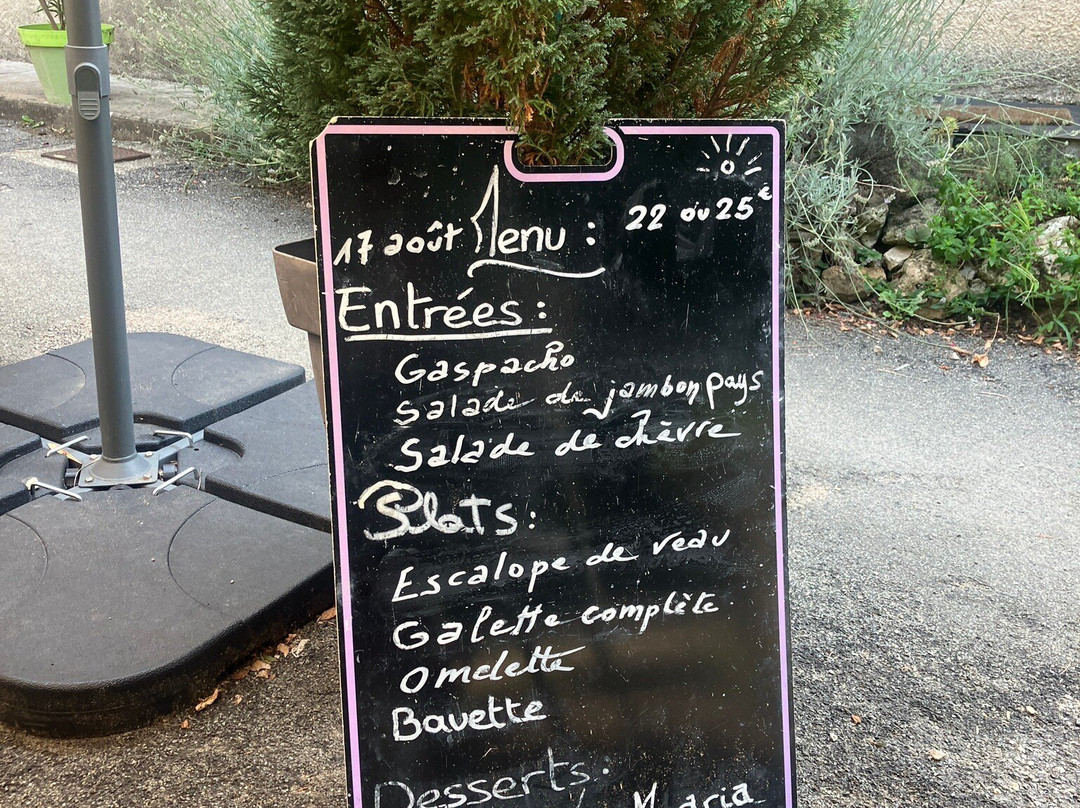 17 août Menu : 22 ou 25€
Entrées :
Gaspacho
Salade de jambon pays
Salade de chèvre
Plats :
Escalope de veau
Galette complète
Omelette
Bavette
Desserts :